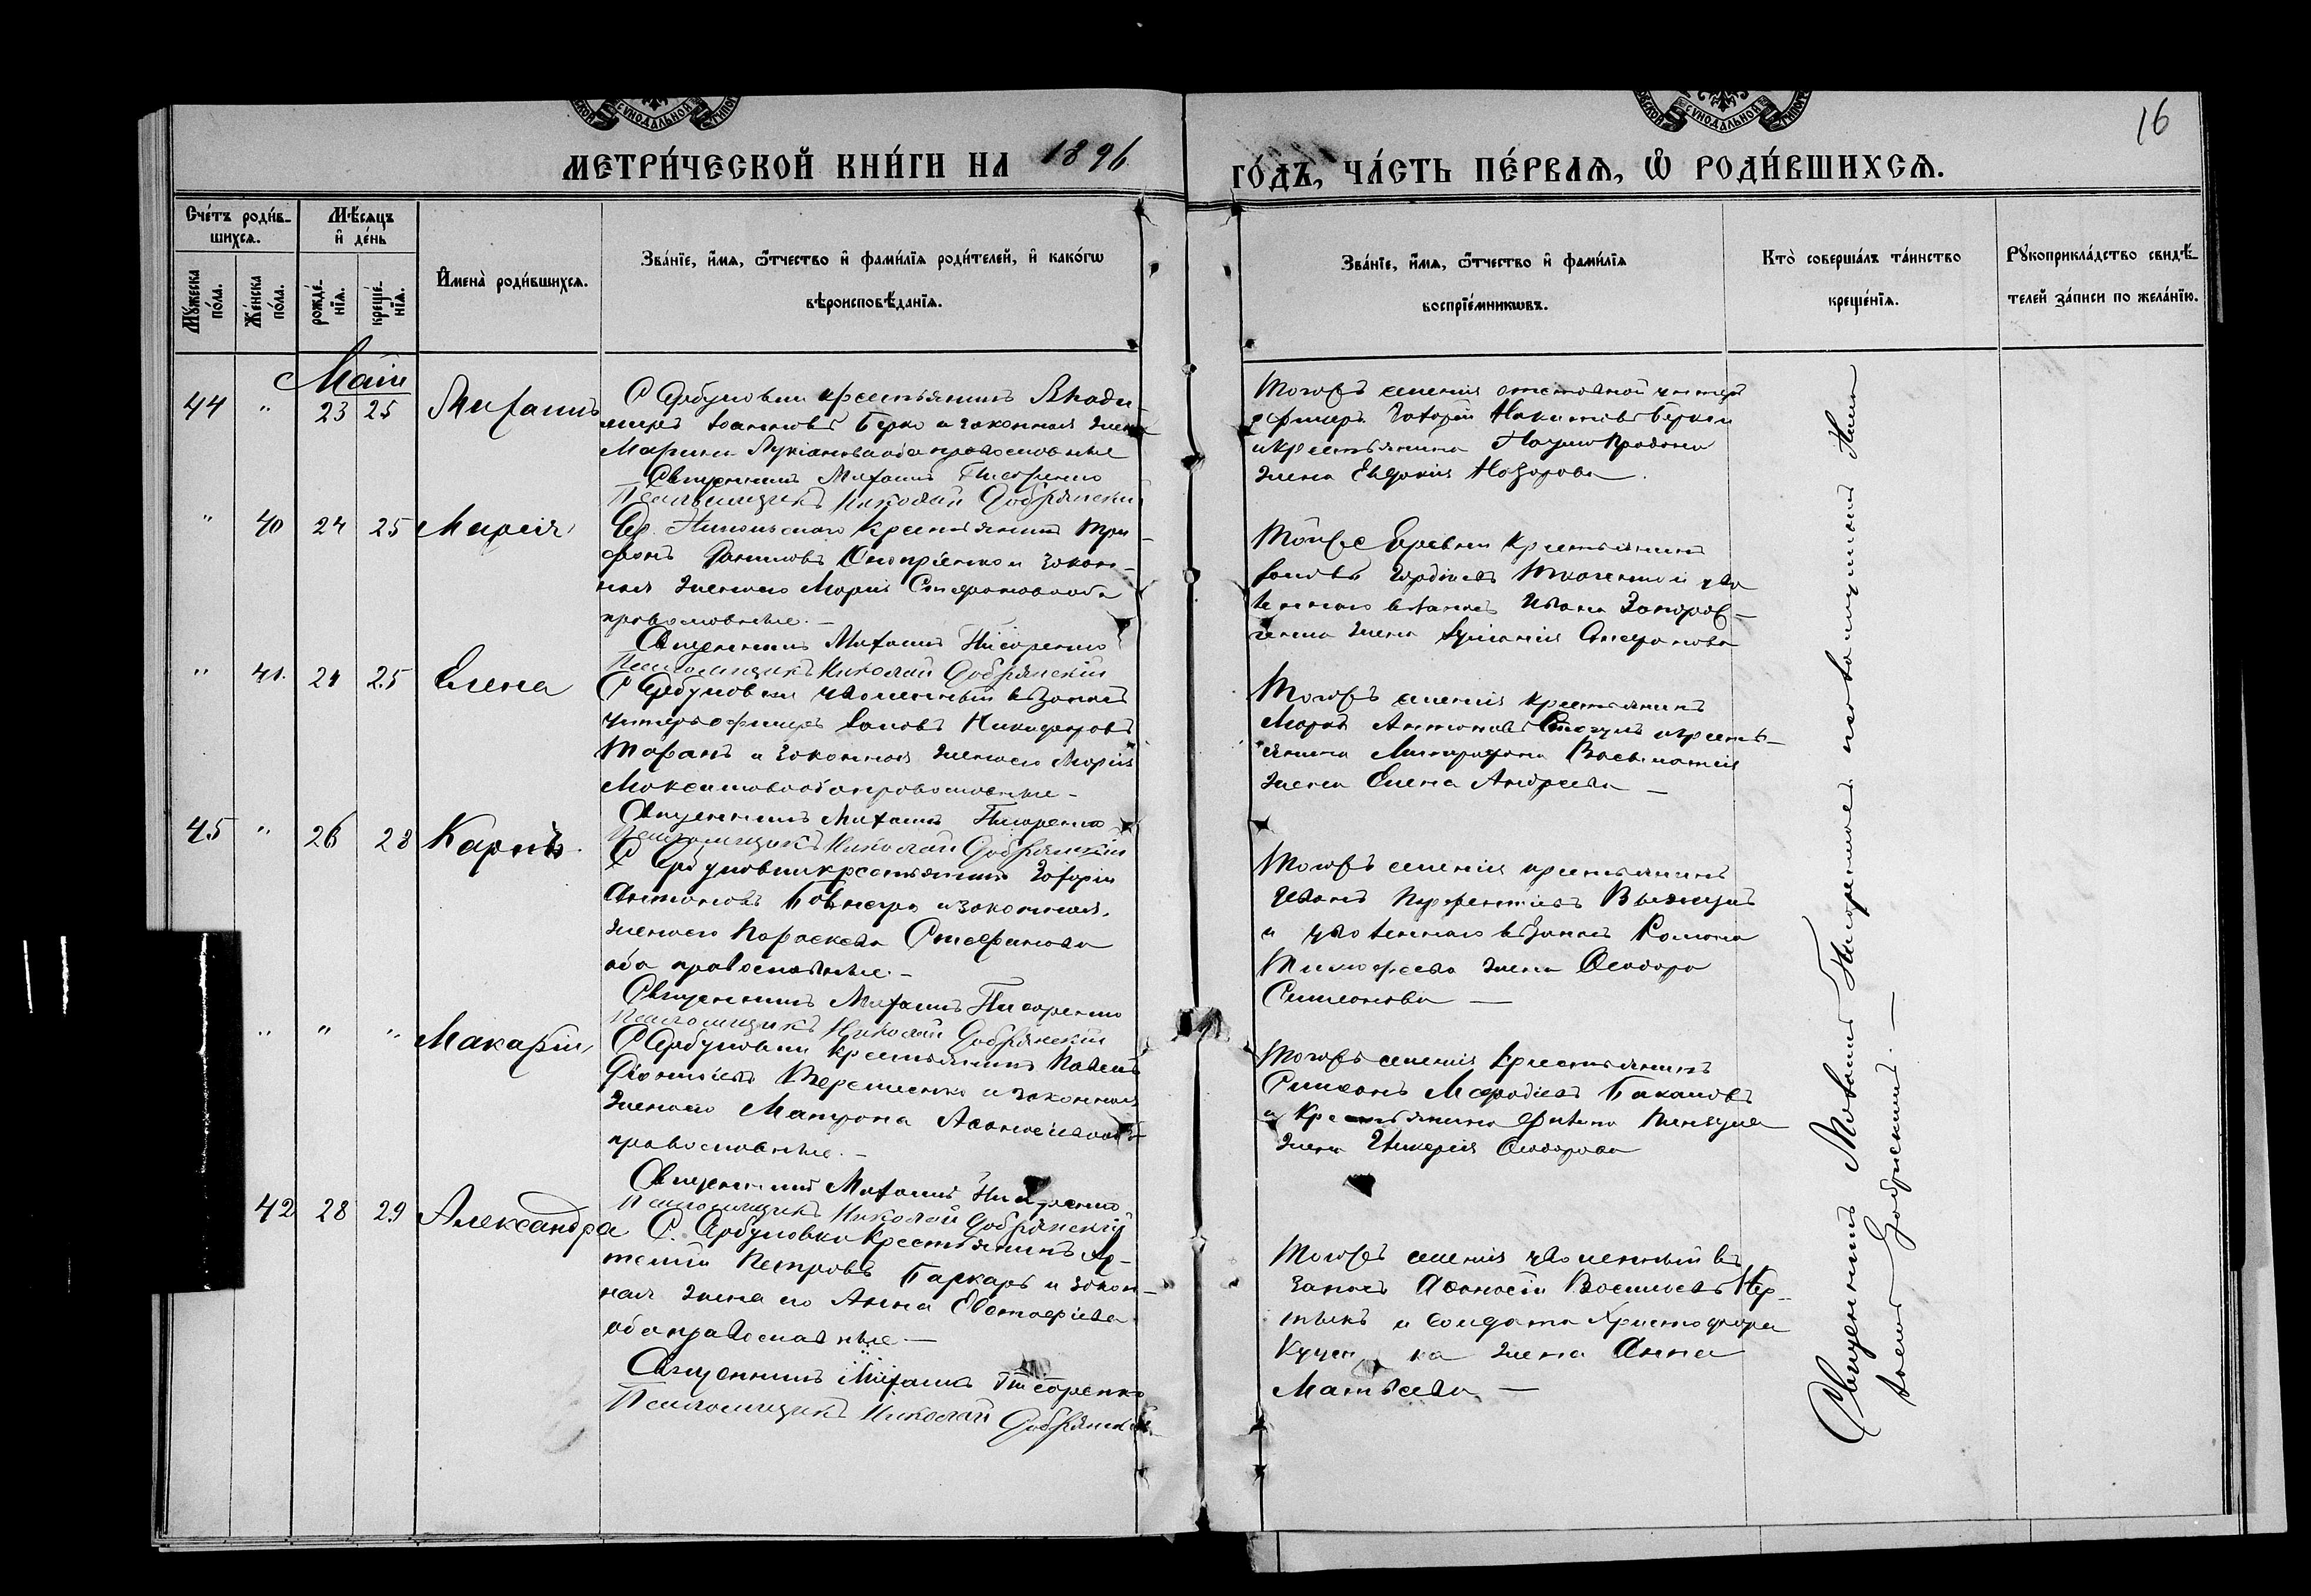 16
МЕТРИ́ЧЕСКОЙ КНИ́ГИ НА 1896 ГО́ДЪ, ЧА́СТЬ ПЕ́РВАѦ, Ѡ҆ РОДИ́ВШИХСѦ.
Сче́тъ роди́в-
шихсѧ.
Мѣ́сѧцъ
и҆ де́нь
Мꙋ́жеска
по́ла.
Же́нска
по́ла.
рожде́-
нїѧ.
креще́-
нїѧ.
И҆мена̀ роди́вшихсѧ.
Зва́нїе, и҆́мѧ, ѻ҆́тчество и҆ фами́лїѧ роди́телей, и҆ како́гѡ
вѣроисповѣ́данїѧ.
Зва́нїе, и҆́мѧ, ѻ҆́тчество и҆ фами́лїѧ
воспрїе́мникѡвъ.
Кто̀ соверша́лъ та́инство
креще́нїѧ.
Рꙋкоприкла́дство свидѣ́-
телей за́писи по жела́нїю.
Май
44 " 23 25 Михаилъ
С Арбузовки крестьянинъ Влади
миръ Іоанновъ Берко и законная жена
Марина Лукіанова оба православные
Священникъ Михаилъ Писаренко
Псаломщикъ Николай Добрянскій
Тогожъ селенія отставной унтеръ
офицеръ Захарій
и крестьянина
жена Евдокія Назарова.
" 40 24 25 Марія
крестьянинъ Три-
фонъ Даниловъ Оноприенко и закон-
ная жена его Марія Стефанова оба
православные.
Священникъ Михаилъ Писаренко
Псаломщикъ Николай Добрянскій
Тойже деревни крестьянинъ
Іаковъ Гордіевъ Ткаченко и уво
леннаго в запасъ Ивана
жена Стефанова
" 41. 24 25 Елена
С Арбузовки уволенный въ запасъ
унтеръ офицеръ Іаковъ Никифоровъ
Таранъ и законная жена его Марія
Максимова оба православные -
Священникъ Михаилъ Писаренко
Псаломщикъ Николай Добрянскій
Тогожъ селенія крестьянинъ
Маркъ Антоновъ и кресть-
янина Митрофана
жена Елена Андреева —
45 " 26 28 Карпъ.
С Арбузовки крестьянинъ Захарій
Антоновъ и законная
жена его Параскева Стефанова
оба православные. -
Священникъ Михаилъ Писаренко
Псаломщикъ Николай Добрянскій
Тогожъ селенія крестьянинъ
Иванъ
и уволеннаго въ запасъ Романа
Тимофеева жена Ѳеодора
Симеонова —
" " " Макарій,
С Арбузовки крестьянинъ Павелъ
Діонисіевъ Веремеенко и законная
жена его Матрона Аѳанасіева оба
православные. -
Священникъ Михаилъ Писаренко
Псаломщикъ Николай Добрянскій
Тогожъ селенія крестьянинъ
Симеонъ Меѳодіевъ Бакаловъ
и крестьянина
жена Гликерія Ѳеодорова
42 28 29 Александра
С. Арбузовки крестьянинъ Ар-
темій Петровъ Баркарь и закон-
ная жена его Анна Евстафіева
оба православные —
Священникъ Михаилъ Писаренко
Псаломщикъ Николай Добрянскій
Тогожъ селенія уволенный въ
запасъ Аѳанасій Васильевъ
и солдата Христофора
жена Анна
Матвеева —
Священникъ Михаилъ Писаренко съ псаломщикомъ Нико
лаемъ Добрянскимъ. —